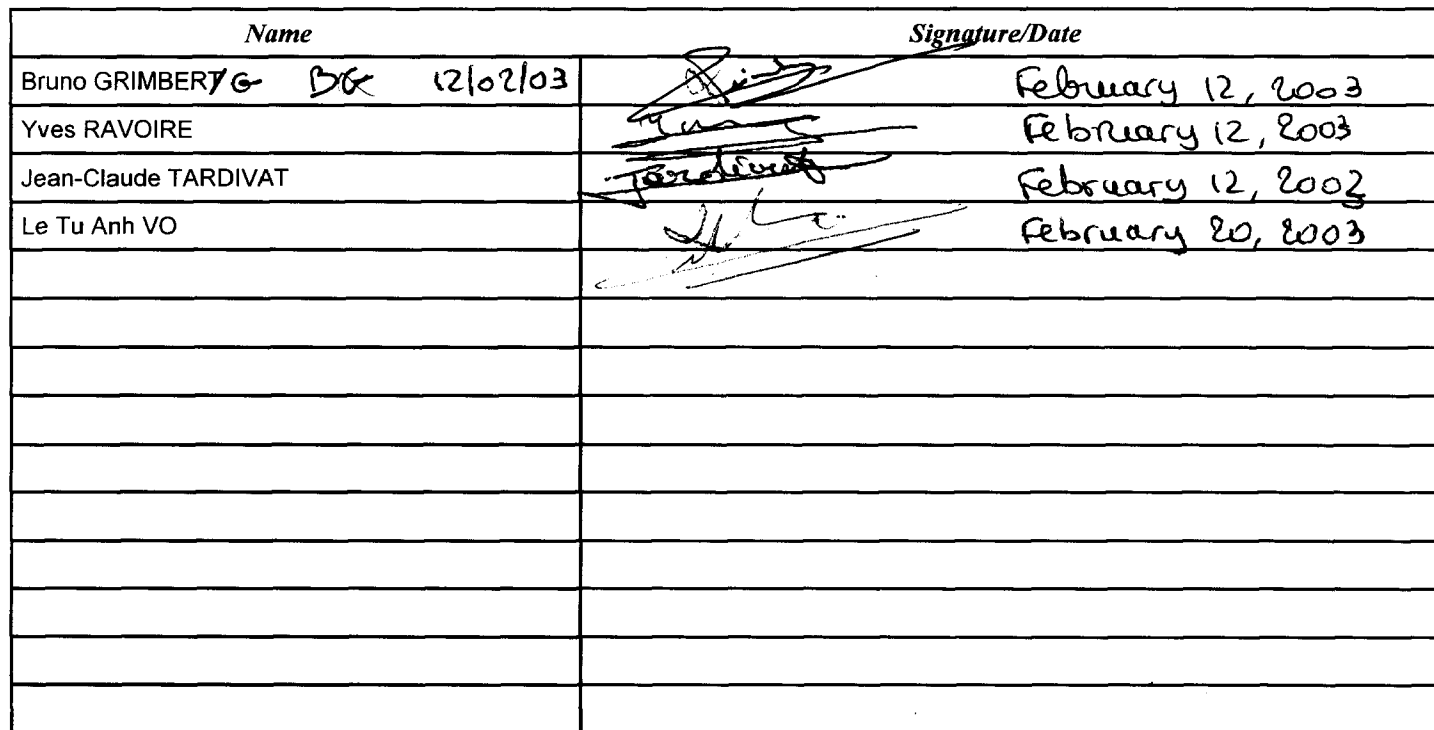 Name Signature/Date
Bruno GRIMBERT G BG 12/02/03 February 12, 2003
Yves RAVOIRE February 12, 2003
Jean-Claude TARDIVAT Tardivat February 12, 2003
Le Tu Anh VO February 20, 2003